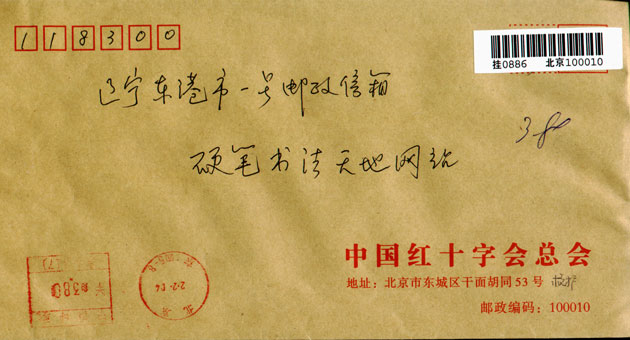 118300
挂0886 北京100010
辽宁东港市一号邮政信箱
3.80
硬笔书法天地网站
中国红十字会总会
地址：北京市东城区干面胡同53号
邮政编码：100010